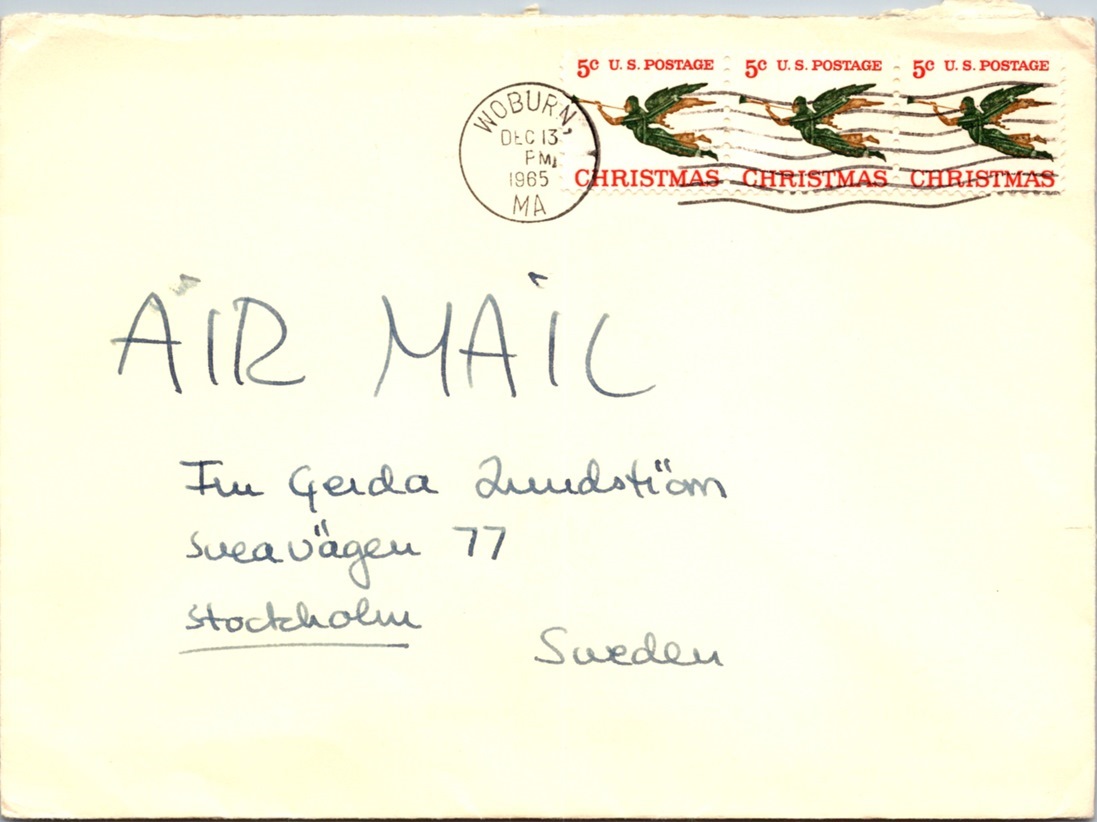 5c U. S. POSTAGE 5c U. S. POSTAGE 5c U. S. POSTAGE
CHRISTMAS CHRISTMAS CHRISTMAS
WOBURN,
DEC 13
PM
1965
MA
AIR MAIL
Fru Gerda Lundström
Sveavägen 77
Stockholm
Sweden